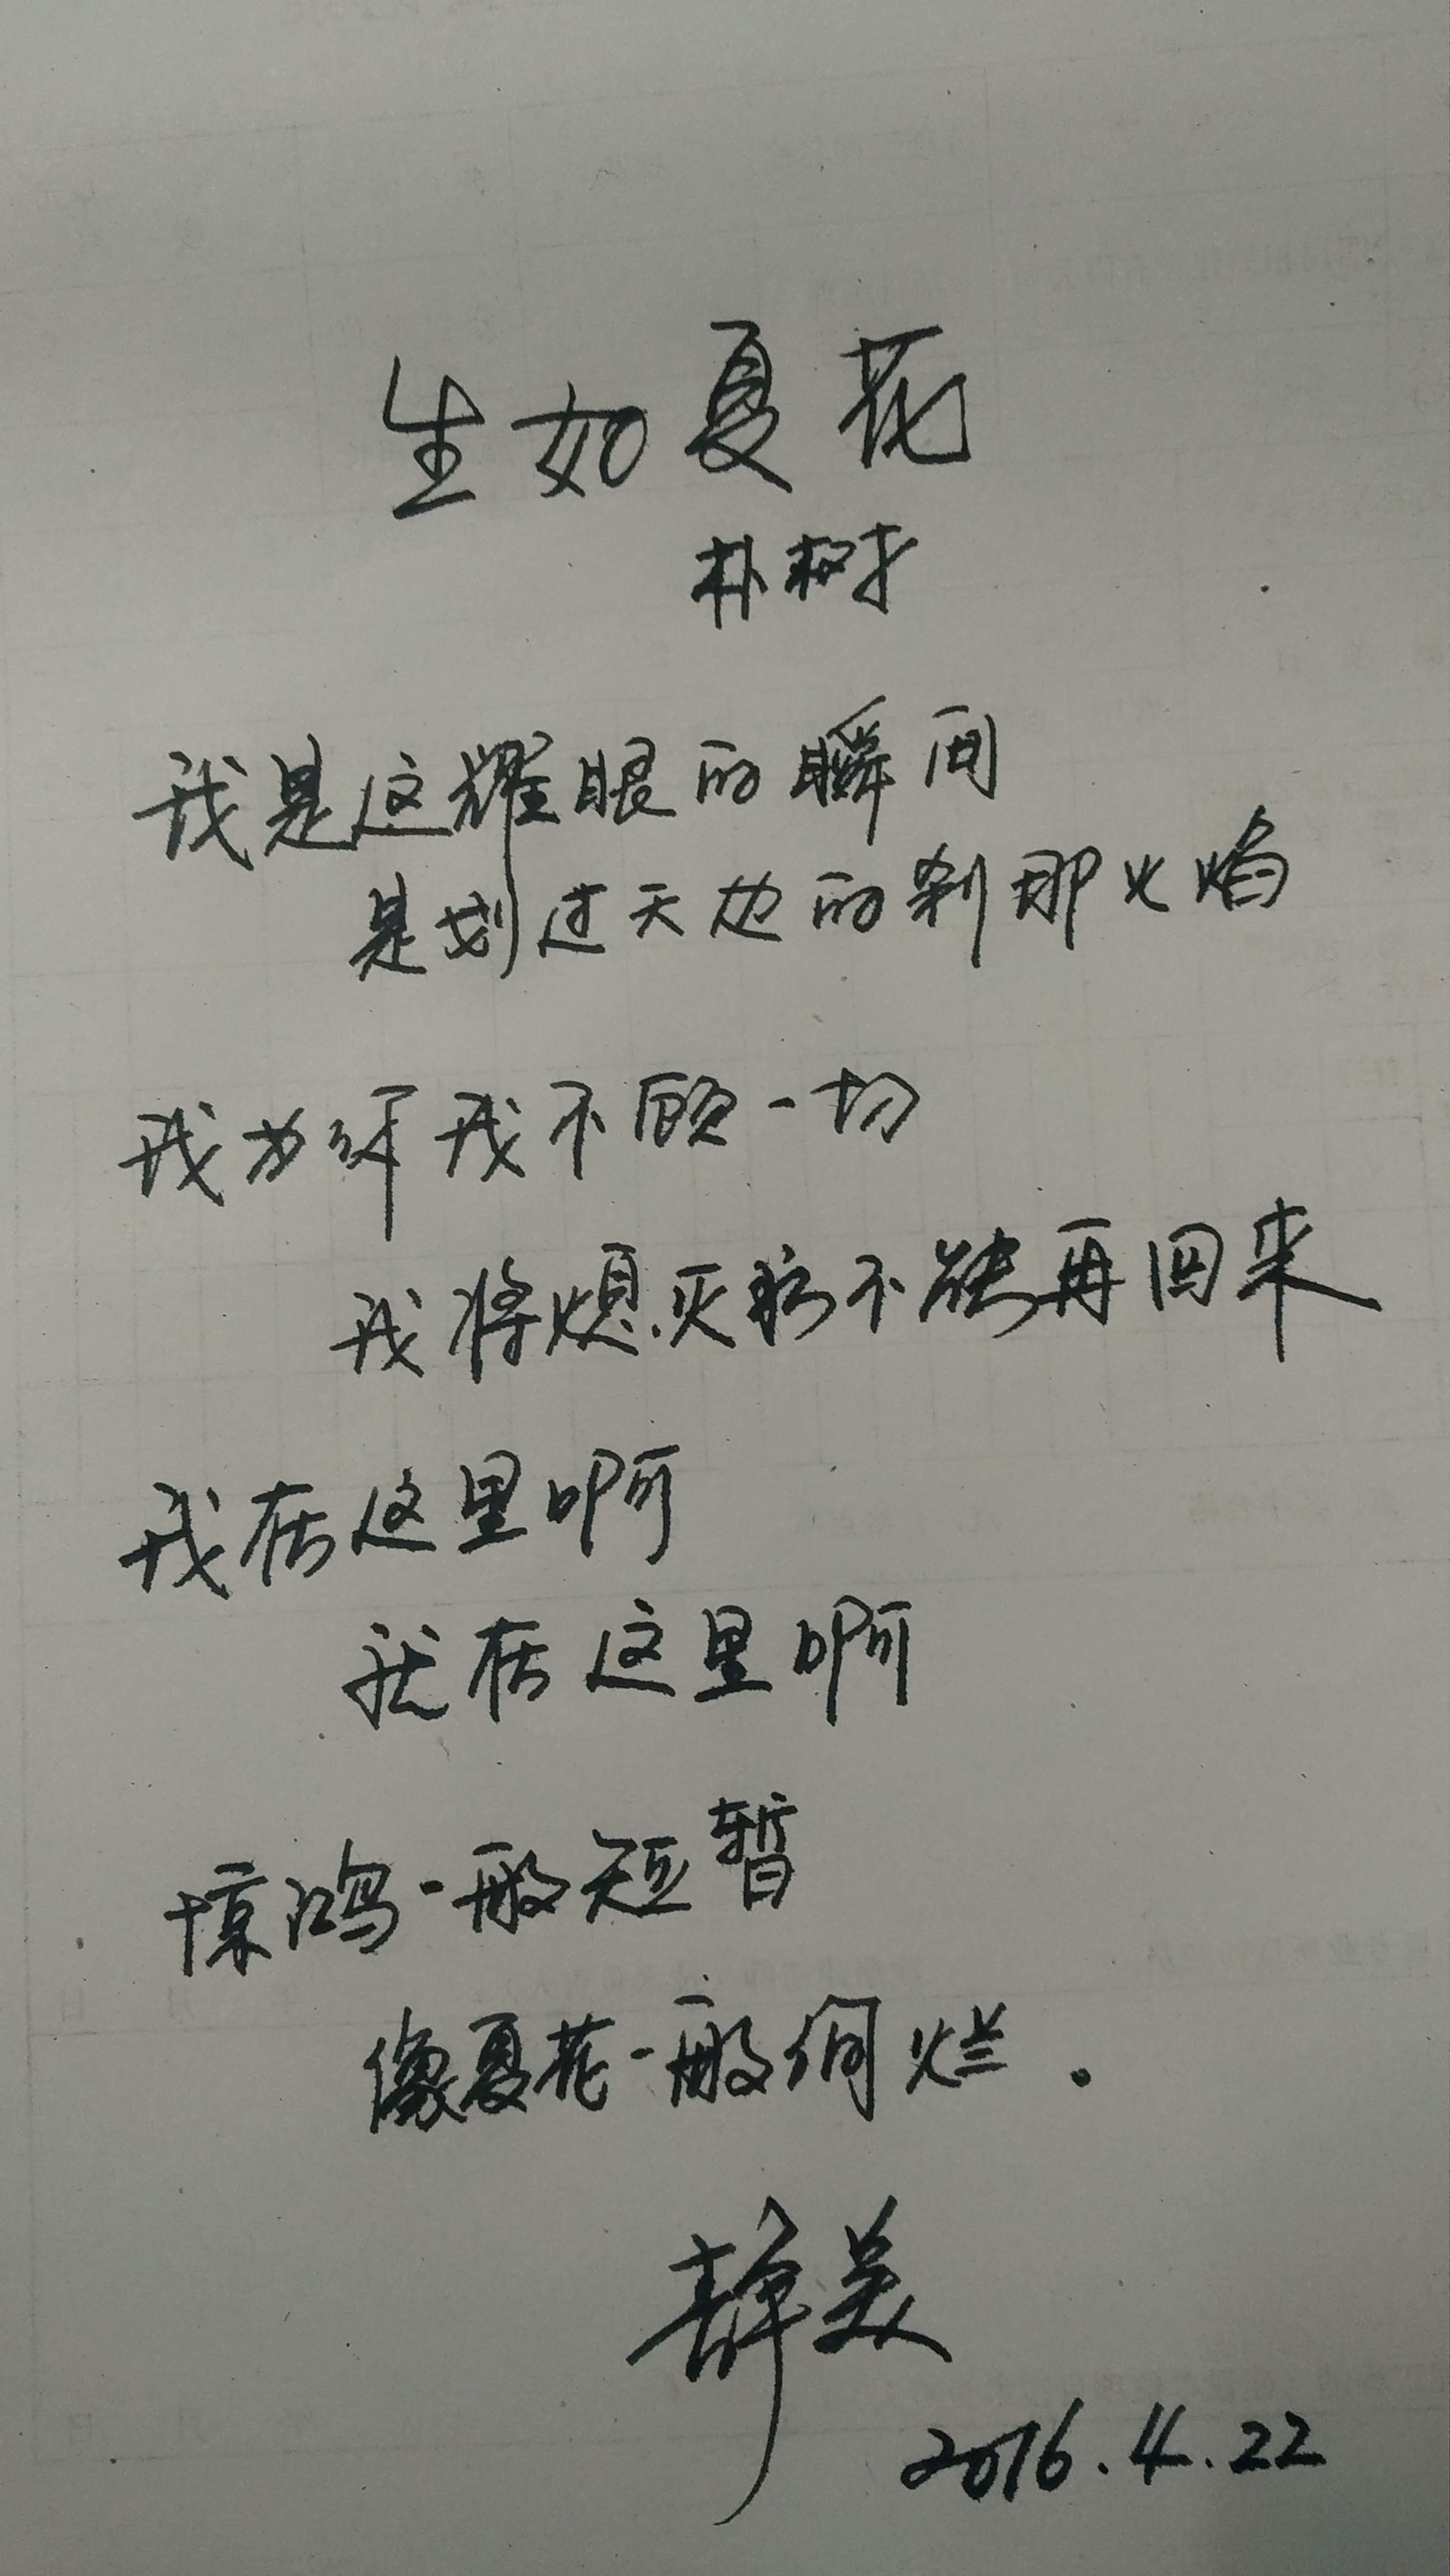 生如夏花
朴树
我是这耀眼的瞬间
是划过天边的刹那火焰
我为你我不顾一切
我将熄灭永不能再回来
我在这里啊
就在这里啊
惊鸿一般短暂
像夏花一般绚烂。
静美
2016.4.22